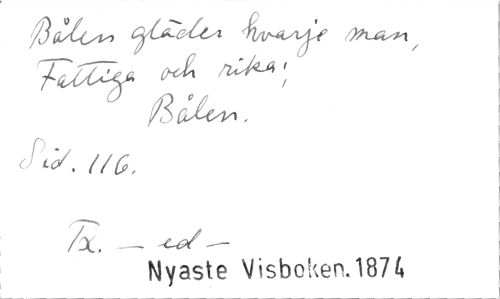 Bålen gläder hvarje man,
Fattiga och rika;
Bålen.
Sid. 116.
Tx. — ed —
Nyaste Visboken. 1874